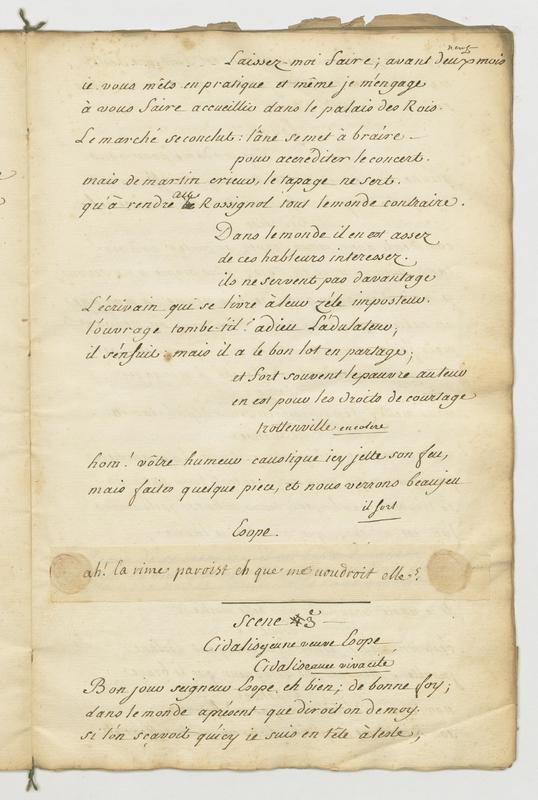 Laissez-moi faire; avant deux neuf mois
je vous méts en pratique et même je m'engage
à vous faire accueillir dans le palais des Rois.
Le marché se conclut: l'âne se met à braire
pour accrediter le concert.
mais de martin crieur, le tapage ne sert.
qu'à rendre au Rossignol tout le monde contraire.
Dans le monde il en est assez
de ces hableurs interessez.
ils ne servent pas davantage
L'écrivain qui se livre à leur zéle imposteur.
l'ouvrage tombe-t'il? adieu L'adulateur;
il s'enfuit: mais il a le bon lot en partage;
et fort souvent le pauvre auteur
en est pour les droits de courtage
trottenville en colere
hom! vôtre humeur caustique icy jette son feu,
mais faites quelque piece, et nous verrons beau jeu
il sort
Esope.
ah! la rime paroist eh que me voudroit elle?
Scene 3e
Cidalise jeune veuve Esope
Cidalise avec vivacité
Bon jour seigneur Esope, eh bien; de bonne foy;
dans le monde apresent que diroit on de moy.
si l'on sçavoit qu'icy je suis en tête à teste;